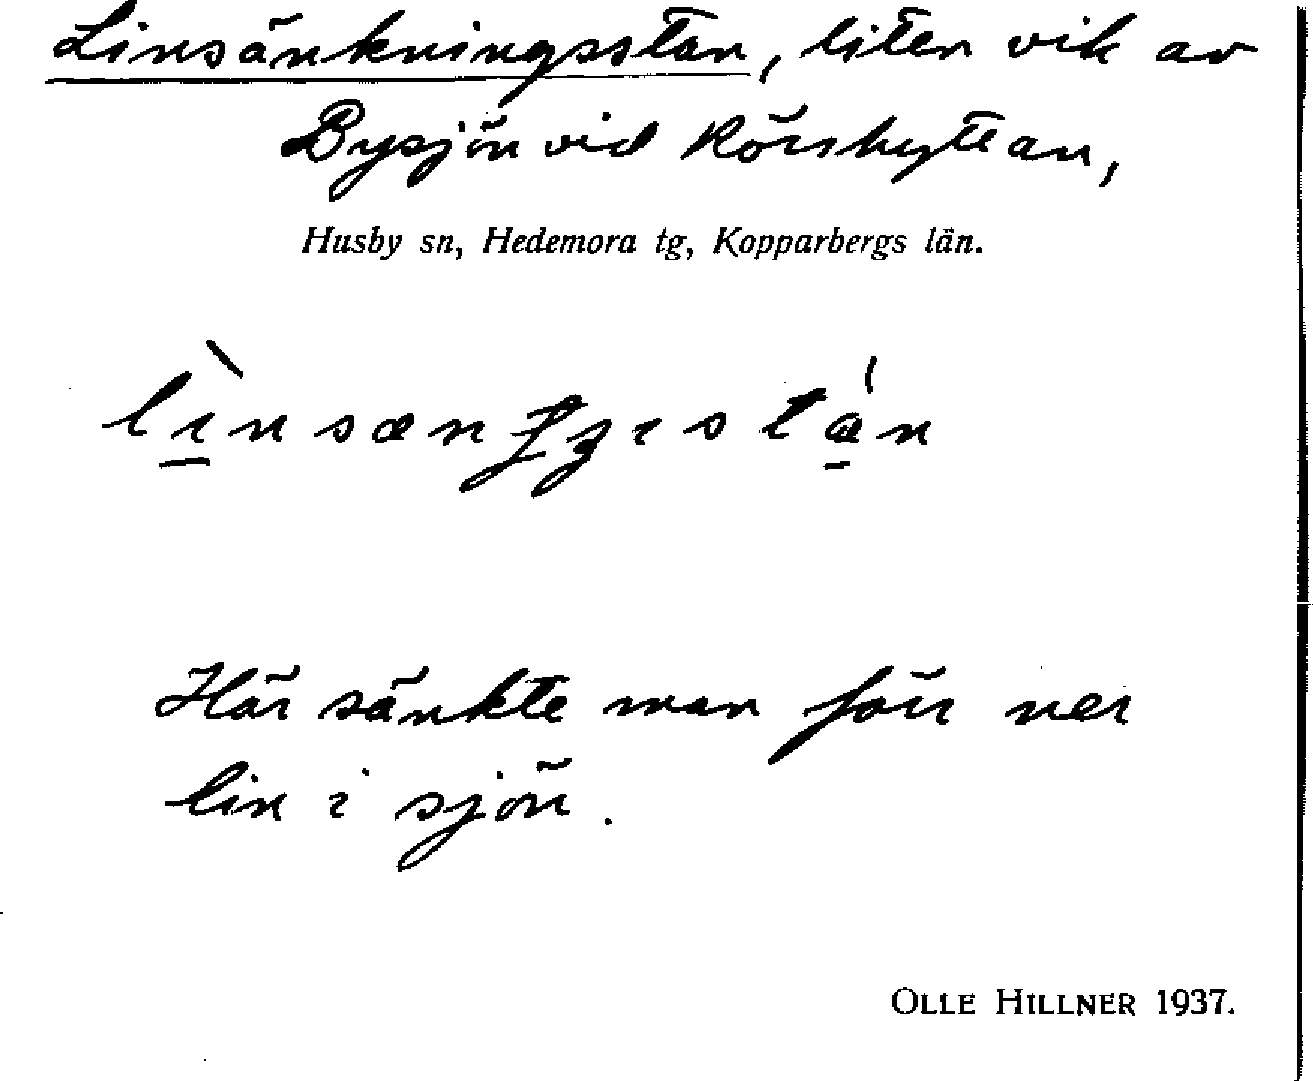 Linsänkningsstan, liten vik av
Bysjön vid Rörshyttan,
Husby sn, Hedemora tg, Kopparbergs län.
Här sänkte man förr ner
lin i sjön.
OLLE HILLNER 1937.